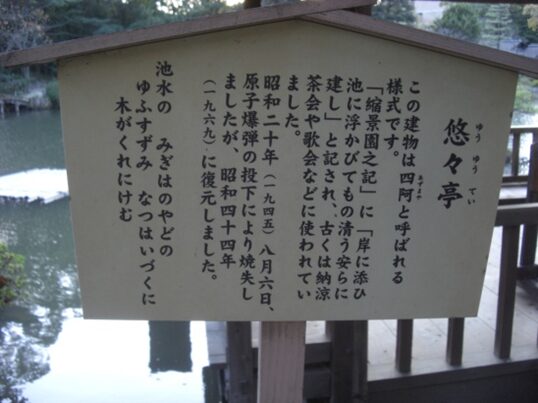 悠々亭
ゆうゆうてい
この建物は四阿と呼ばれる
あずまや
様式です。
「縮景園之記」に「岸に添ひ
池に浮かびてもの清う安らに
建し」と記され、古くは納涼
茶会や歌会などに使われてい
ました。
昭和二十年(一九四五)八月六日、
原子爆弾の投下により焼失し
ましたが、昭和四十四年
(一九六九)に復元しました。
池水の みぎはのやどの
ゆふすずみ なつはいづくに
木がくれにけむ